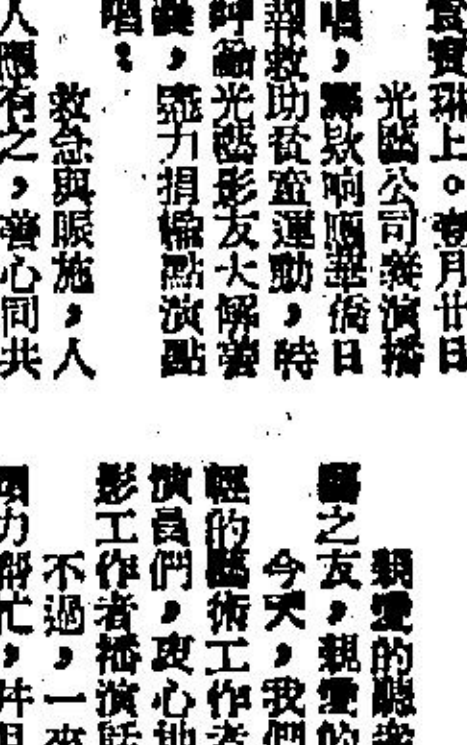 宣寶琳上。□月廿日
光藝公司義演播
唱，籌款响應華僑日
報救助貧童運動，特
呼籲光藝影友大解義
囊，盡力捐輸點演點
唱：
救急與賑施，人
人應有之，善心同共
親愛的聽衆
之友，親愛的
今天，我們
的藝術工作者
演員們，衷心地
影工作者播演話
不過，一來
力幫忙，并且